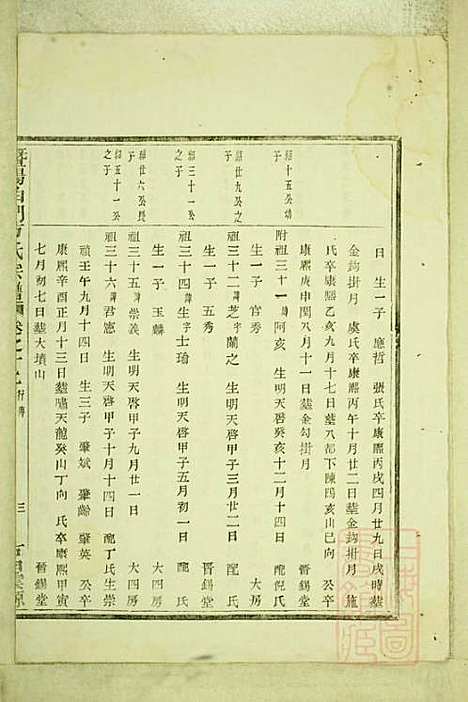 日 生一子 應哲 張氏卒康熙丙戌四月廿九日戌時墓
金鈎掛月 虞氏卒康熙丙午十月廿二日墓金鈎掛月 施
氏卒康熙乙亥九月十七日墓八都下陳四亥山巳向 公卒
康熙庚申閏八月十一日墓金勾掛月 晋錫堂
紹十五公幼子
附祖三十一 諱阿亥 生明天啓癸亥十二月十四日 配倪氏
生一子 官秀 大房
紹廿九公之子
祖三十二 諱芝蘭之 生明天啓甲子三月廿二日 配氏
生一子 五秀 晋錫堂
紹三十一公之子
祖三十四 生字士瑜 生明天啓甲子五月初一日 配氏
生一子 玉麟 大四房
紹廿六公長子
祖三十五 諱崇義 生明天啓甲子九月廿一日 大四房
紹五十一公之子
祖三十六 諱君憲 生明天啓甲子十月十四日 配丁氏生崇
禎壬午九月十四日 生三子 肇斌 肇齡 肇英 公卒
康熙辛酉正月十三日墓嘯天龍癸山丁向 氏卒康熙甲寅
七月初七日墓大墳山 晋錫堂
暨陽 方氏宗譜 卷之 三